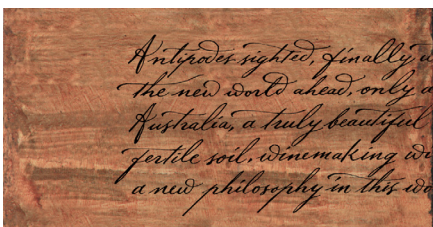 Antipodes sighted, finally
the new world ahead, only a
Australia, a truly beautiful
fertile soil, winemaking
a new philosophy in this